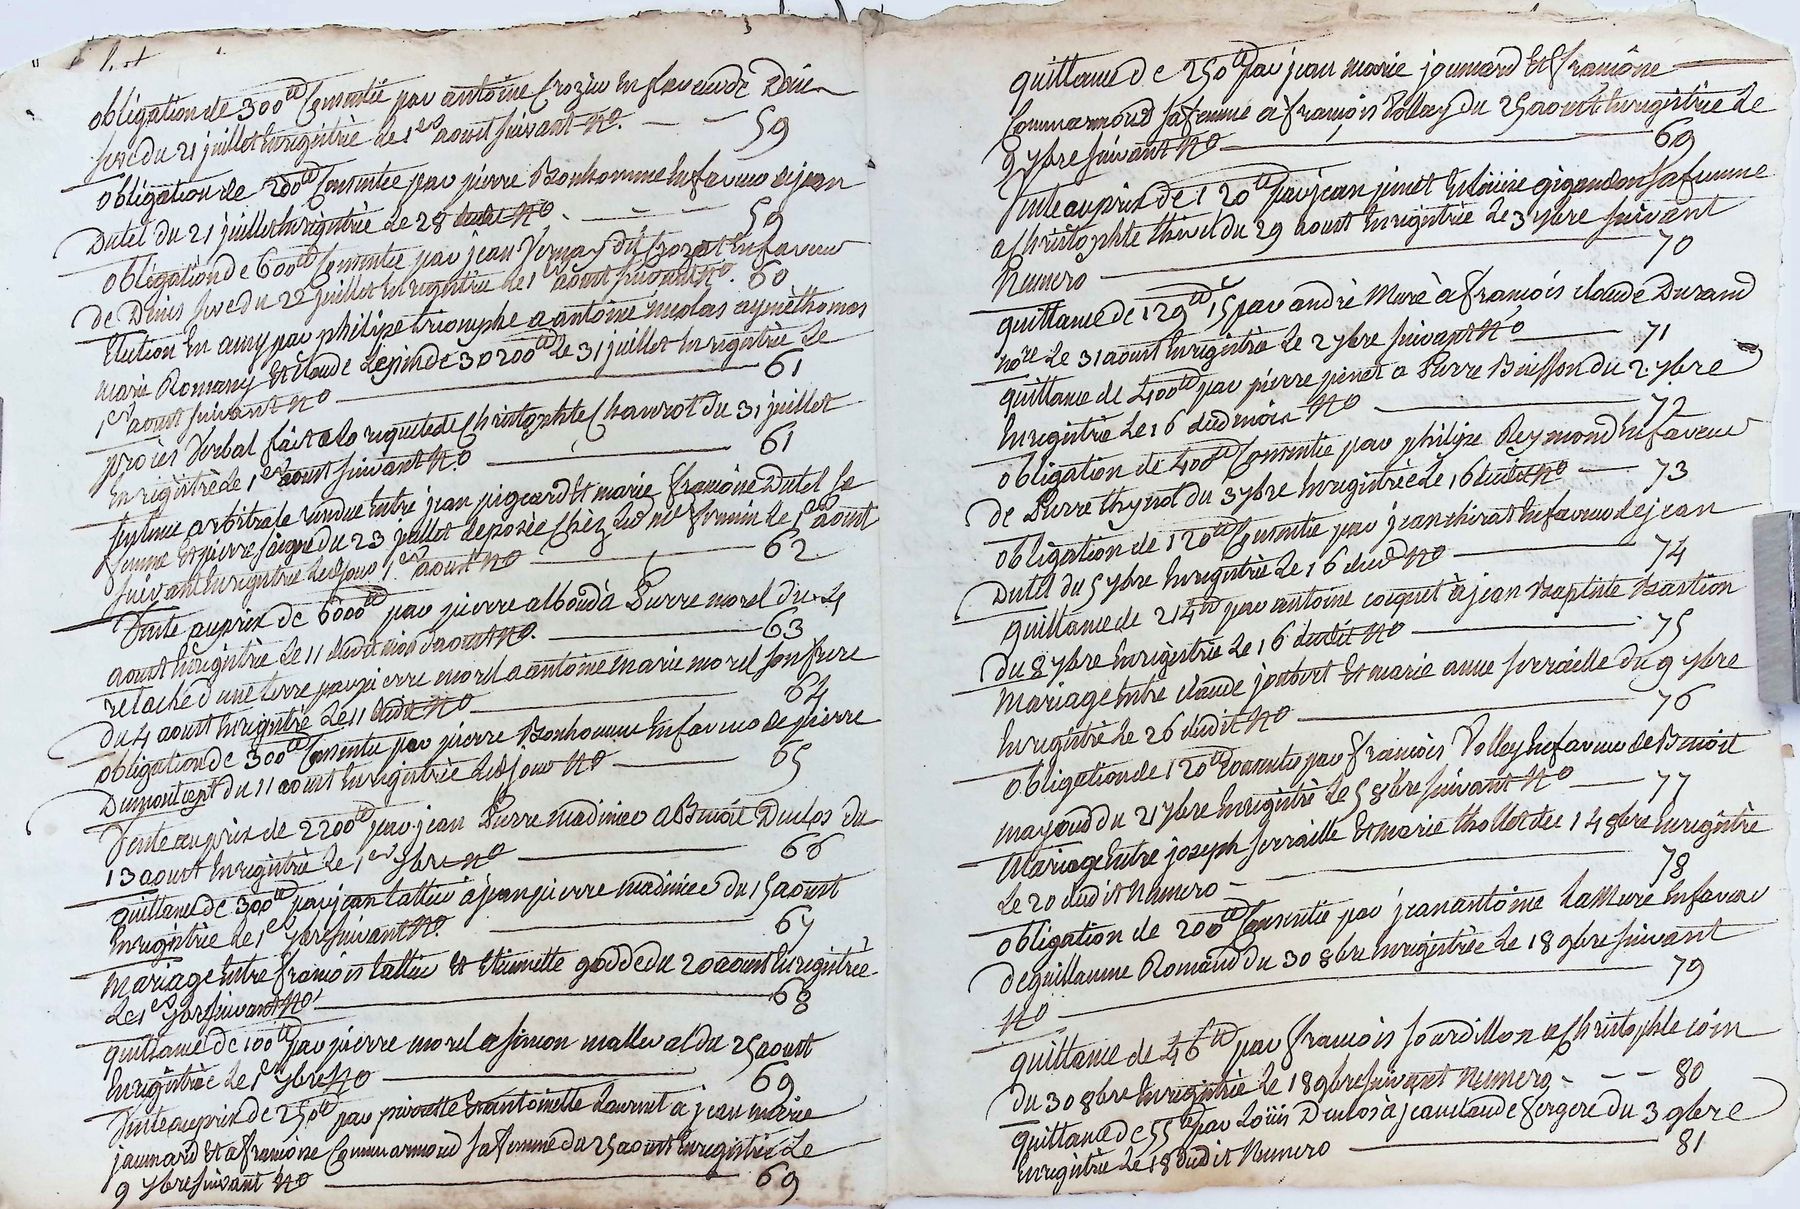 obligation de 300tt Consentie par antoine Crozier En faveur de Denis
du 21 juillet Enregistrée le 1er aoust suivant No. 59
obligation de 200tt Consentie par pierre Bonhomme En faveur de jean
Dutel du 21 juillet Enregistrée Le 28 dudit No. 59
obligation de 600tt Consentie par jean Vernay dit Crozat En faveur
de Denis du 22 juillet Enregistrée le 1er aoust suivant No. 60
Election En amy par philipe triomphe a antoine nicolas aymé thomas
marie Romany Et Claude Lespin de 30200tt Le 31 juillet Enregistrée Le
1er aoust suivant No 61
procès Verbal fait a la requete de Christophle Chavrot du 31 juillet
Enregistré le 1er aoust suivant No. 61
sentence arbitrale rendue Entre jean pigeard Et marie francoise Dutel sa
femme Et pierre du 23 juillet deposée Chéz Led. me le 1er aoust
suivant Enregistrée Led. jour 1er aoust No 62
Vente au prix de 6000tt par pierre alboud à Pierre morel du 4
aoust Enregistrée Le 11 dudit mois daoust No. 63
relaché d'une terre par pierre morel a antoine marie morel son frere
du 4 aoust Enregistré Le 11 dudit No 64
obligation de 300tt Consentie par pierre Bonhomme En faveur de pierre
Dumontcept du 11 aoust Enregistrée Led. jour No 65
Vente au prix de 2200tt par jean Pierre madinier a Benoit Duclos du
13 aoust Enregistrée le 1er 7bre No 66
quittance de 300tt par jean lattier à jean pierre madinier du 15 aoust
Enregistrée Le 1er 7bre suivant No. 67
mariage Entre francois lattier Et Etiennette godde du 20 aoust Enregistrée
Le 1er 7bre suivant No. 68
quittance de 100tt par pierre morel a simon malleval du 25 aoust
Enregistrée Le 1er 7bre No 69
Vente au prix de 250tt par pierrette Et antoinette Laurent à jean marie
jaumard Et a francoise Commarmond sa femme du 25 aoust Enregistrée Le
9 7bre suivant No 69
quittance de 250tt par jean marie joumard Et francoise
Commarmond sa femme a francois Volley du 25 aoust Enregistrée Le
9 7bre suivant No 69
Vente au prix de 120tt par jean pinet Et Loüise gigandon sa femme
a Christophle thivel du 29 aoust Enregistrée Le 3 7bre suivant
Numero 70
quittance de 129tt 15 par andré Muré à francois claude Durand
nore Le 31 aoust Enregistrée Le 2 7bre suivant No 71
quittance de 400tt par pierre pinet a Pierre Buisson du 2. 7bre
Enregistrée Le 16 dud. mois No 72
obligation de 400tt Consentie par philipe Reymond En faveur
de Pierre thynot du 3 7bre Enregistrée Le 16 dudit No 73
obligation de 120tt Consentie par jean chirat En faveur de jean
Dutel du 5 7bre Enregistrée Le 16 dud. No 74
quittance de 214tt par antoine coquet à jean Baptiste Bastion
du 8 7bre Enregistrée Le 16 dudit No 75
mariage Entre claude joubert Et marie anne serraille du 9 7bre
Enregistré Le 26 dudit No 76
obligation de 120tt Consentie par francois Volley En faveur de Benoit
mayoud du 21 7bre Enregistrée Le 5 8bre suivant No 77
Mariage Entre joseph serraille Et marie thollot du 14 8bre Enregistré
Le 20 dudit Numero 78
obligation de 200tt Consentie par jean antoine La Mure En faveur
de guillaume Romand du 30 8bre Enregistrée Le 18 9bre suivant
No 79
quittance de 46tt par francois sourdillon a Christophle coin
du 30 8bre Enregistrée Le 18 9bre suivant Numero 80
quittance de 55tt par Loüis Duclos à jean claude fergere du 3 9bre
Enregistrée Le 18 dudit Numero 81